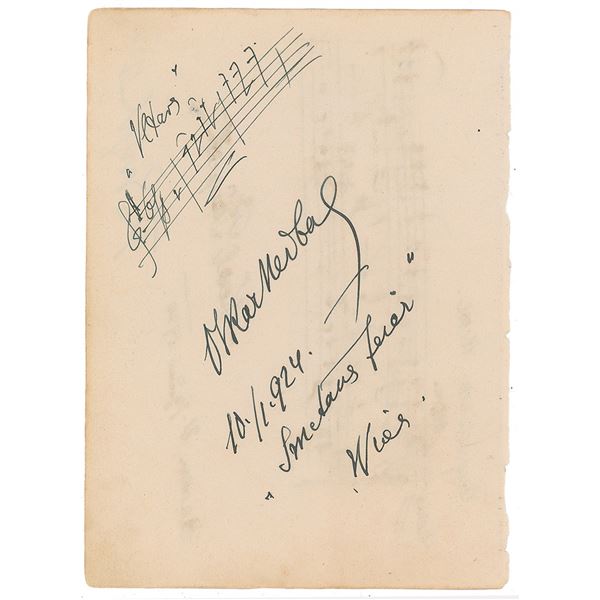 "Vltava"
Oskar Nedbal
10./1.924.
"Smetana feier"
Wien.